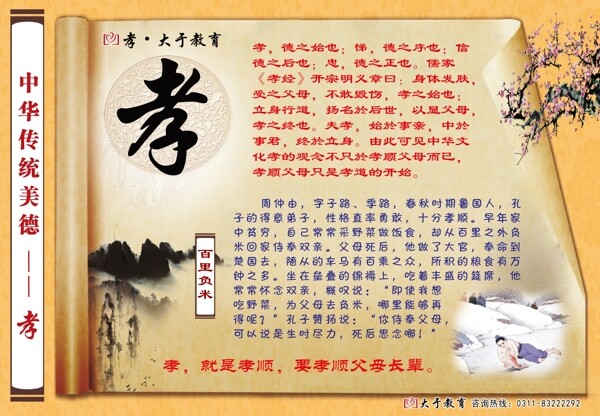 中华传统美德——孝
孝·大于教育
孝
孝，德之始也；悌，德之序也；信
德之后也；忠，德之正也。儒家
《孝经》开宗明义章曰：身体发肤，
受之父母，不敢毁伤，孝之始也；
立身行道，扬名於后世，以显父母，
孝之终也。夫孝，始於事亲，中於
事君，终於立身。由此可见中华文
化孝的观念不只於孝顺父母而已，
孝顺父母只是孝道的开始。
百里负米
周仲由，字子路、季路，春秋时期鲁国人，孔
子的得意弟子，性格直率勇敢，十分孝顺。早年家
中贫穷，自己常常采野菜做饭食，却从百里之外负
米回家侍奉双亲。父母死后，他做了大官，奉命到
楚国去，随从的车马有百乘之众，所积的粮食有万
钟之多。坐在垒叠的锦褥上，吃着丰盛的筵席，他
常常怀念双亲，慨叹说：“即使我想
吃野菜，为父母去负米，哪里能够再
得呢？”孔子赞扬说：“你侍奉父母，
可以说是生时尽力，死后思念哪！”
孝，就是孝顺，要孝顺父母长辈。
大于教育 咨询热线：0311-83222292